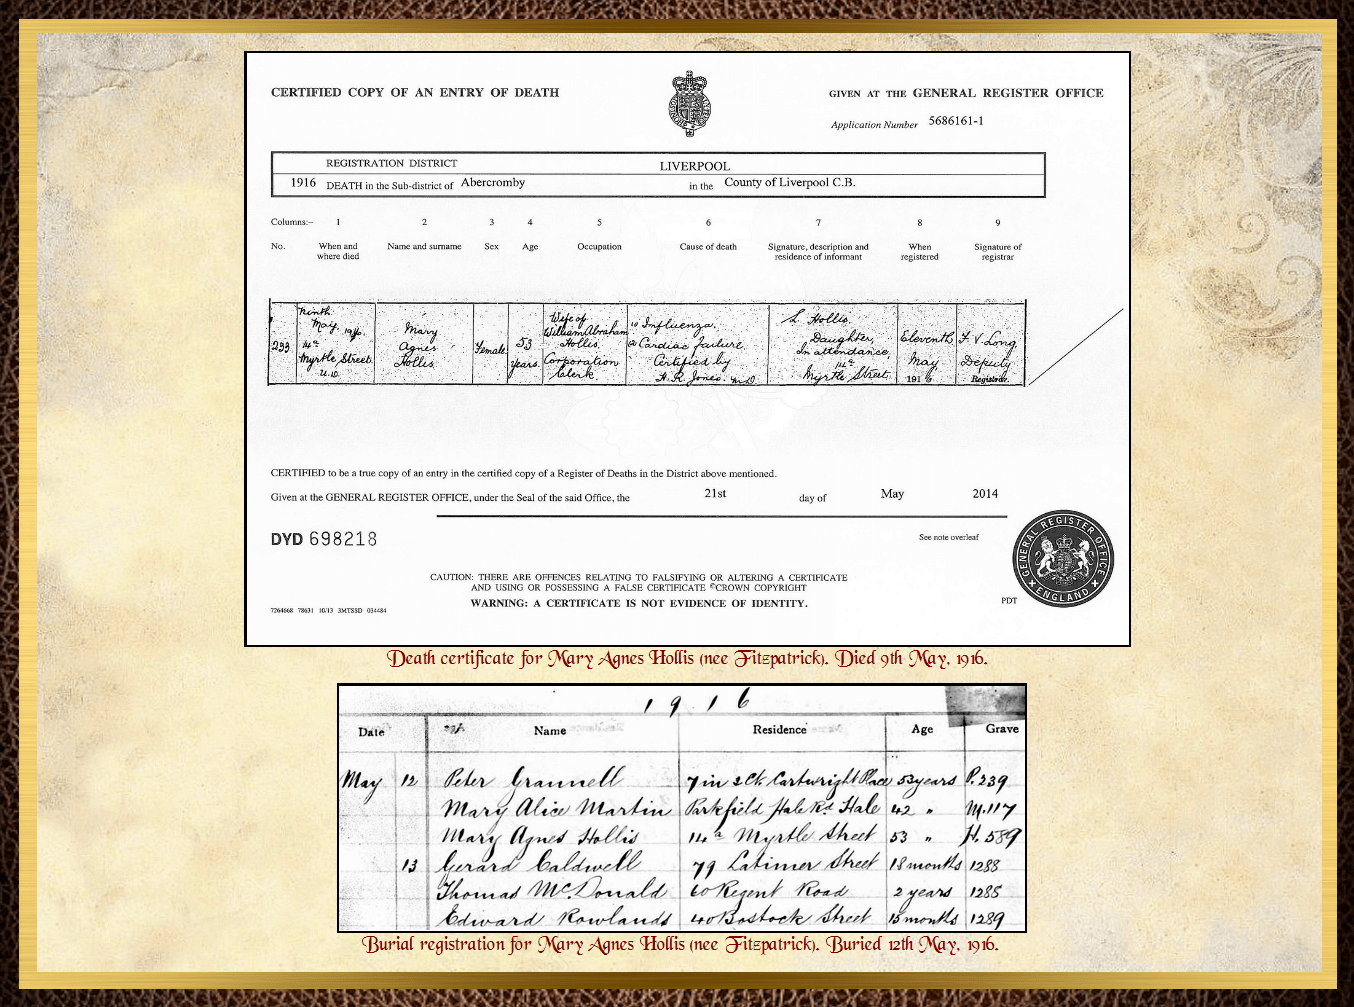 CERTIFIED COPY OF AN ENTRY OF DEATH
GIVEN AT THE GENERAL REGISTER OFFICE
Application Number 5686161-1
REGISTRATION DISTRICT LIVERPOOL
1916 DEATH in the Sub-district of Abercromby in the County of Liverpool C.B.
Columns:- 1 2 3 4 5 6 7 8 9
No. When and where died Name and surname Sex Age Occupation Cause of death Signature, description and residence of informant When registered Signature of registrar
233
Ninth
May 1916
14a
Myrtle Street
U.D.
Mary
Agnes
Hollis
Female
53
years
Wife of
William Abraham
Hollis
Corporation
Clerk
Influenza
Cardiac failure
Certified by
M.D.
L. Hollis
Daughter,
In attendance,
14a
Myrtle Street
Eleventh
May
1916
F. V. Long
Deputy
Registrar.
CERTIFIED to be a true copy of an entry in the certified copy of a Register of Deaths in the District above mentioned.
Given at the GENERAL REGISTER OFFICE, under the Seal of the said Office, the 21st day of May 2014
DYD 698218
See note overleaf
CAUTION: THERE ARE OFFENCES RELATING TO FALSIFYING OR ALTERING A CERTIFICATE
AND USING OR POSSESSING A FALSE CERTIFICATE ©CROWN COPYRIGHT
WARNING: A CERTIFICATE IS NOT EVIDENCE OF IDENTITY.
7264668 78631 10/13 3MTSSD 034484
PDT
GENERAL REGISTER OFFICE
ENGLAND
Death certificate for Mary Agnes Hollis (nee Fitzpatrick). Died 9th May, 1916.
1916
Date Name Residence Age Grave
May 12 Peter Grannell 7 in 2 Ct. Cartwright Place 53 years P. 239
Mary Alice Martin Parkfield Hale Rd. Hale 42 " M. 117
Mary Agnes Hollis 14a Myrtle Street 53 " H. 589
13 Gerard Caldwell 79 Latimer Street 18 months 1288
Thomas McDonald 60 Regent Road 2 years 1285
Edward Rowlands 40 Bostock Street 15 months 1289
Burial registration for Mary Agnes Hollis (nee Fitzpatrick). Buried 12th May, 1916.